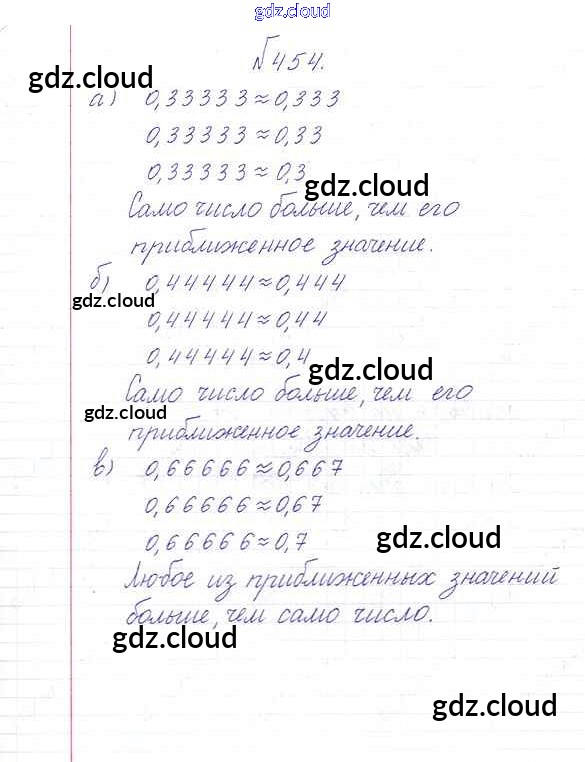 gdz.cloud
№454.
gdz.cloud
а) 0,33333≈0,333
0,33333≈0,33
0,33333≈0,3
gdz.cloud
Само число больше, чем его
приближенное значение.
б) 0,44444≈0,444
gdz.cloud
0,44444≈0,44
0,44444≈0,4
gdz.cloud
Само число больше, чем его
gdz.cloud
приближенное значение.
в) 0,66666≈0,667
0,66666≈0,67
0,66666≈0,7
gdz.cloud
Любое из приближенных значений
больше, чем само число.
gdz.cloud
gdz.cloud